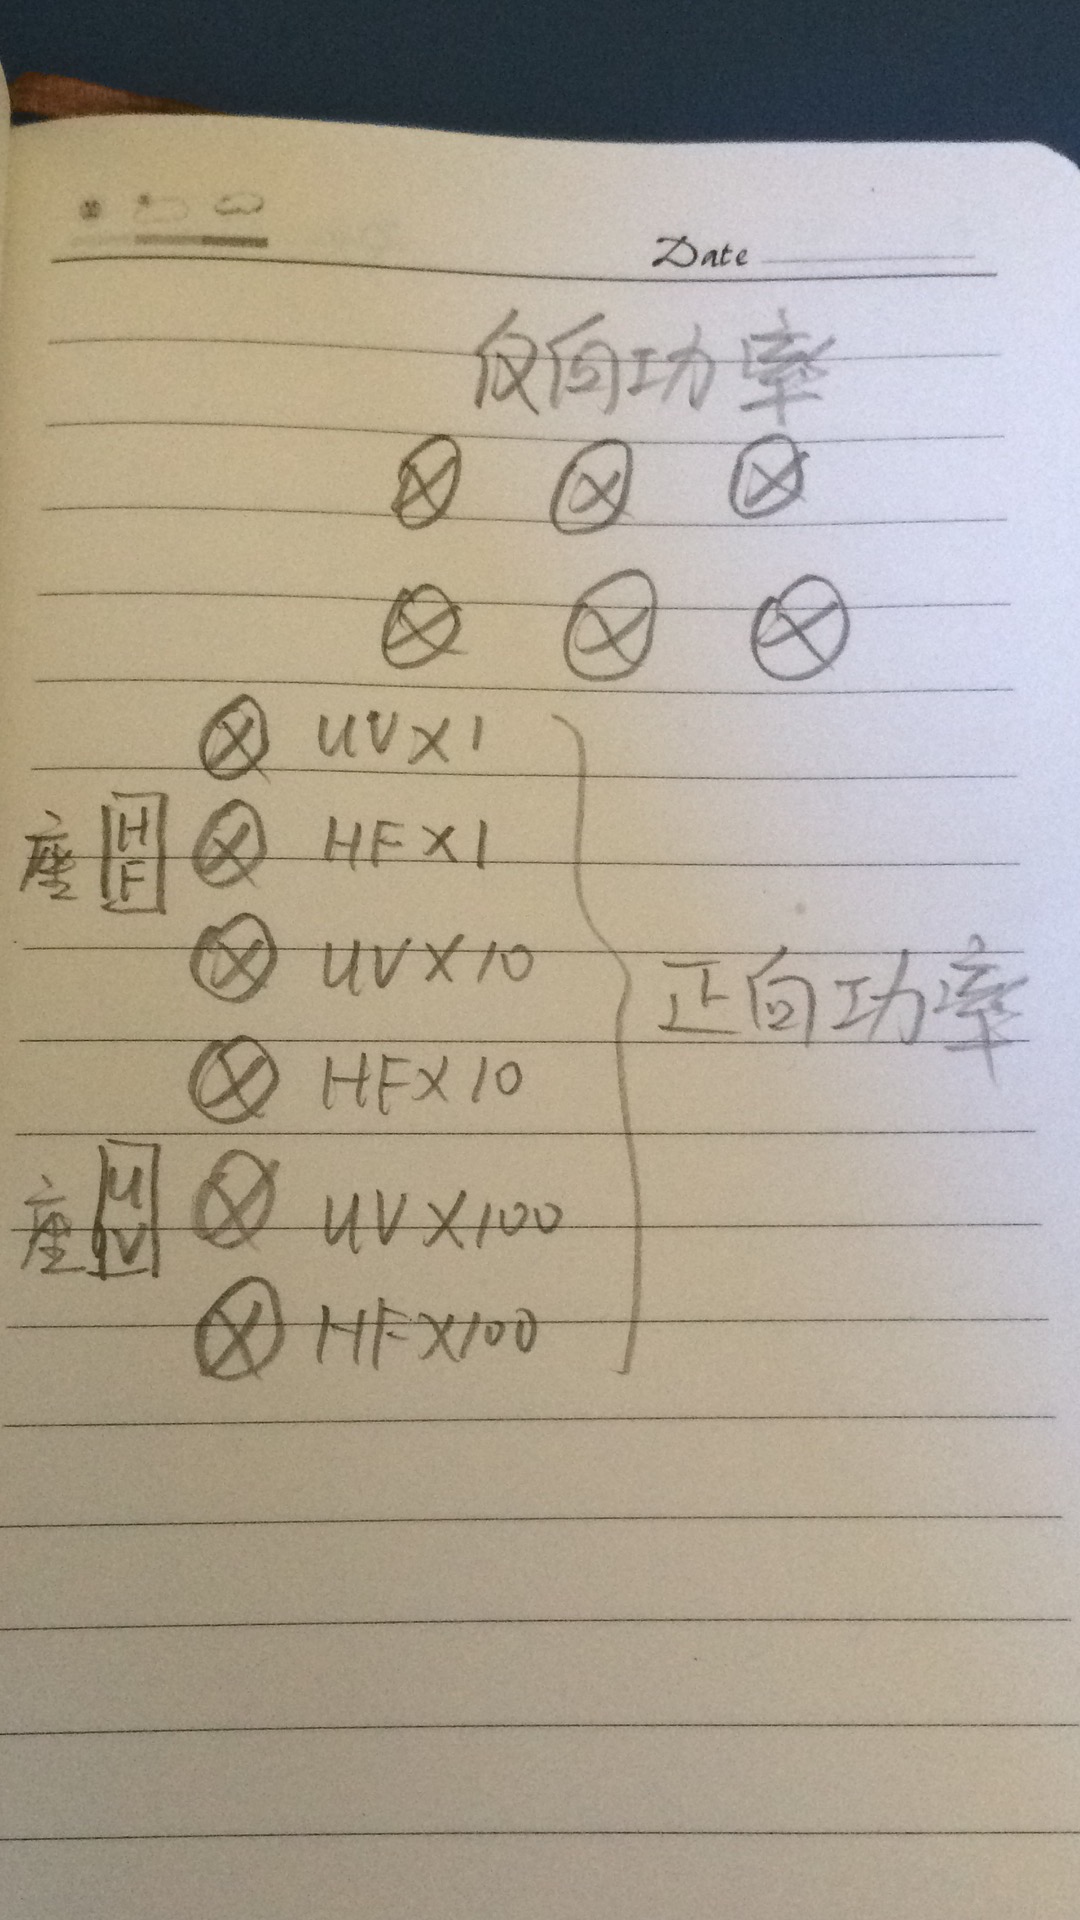 Date
反向功率
UV X 1
座 HF HF X 1
UV X 10
正向功率
HF X 10
座 UV UV X 100
HF X 100